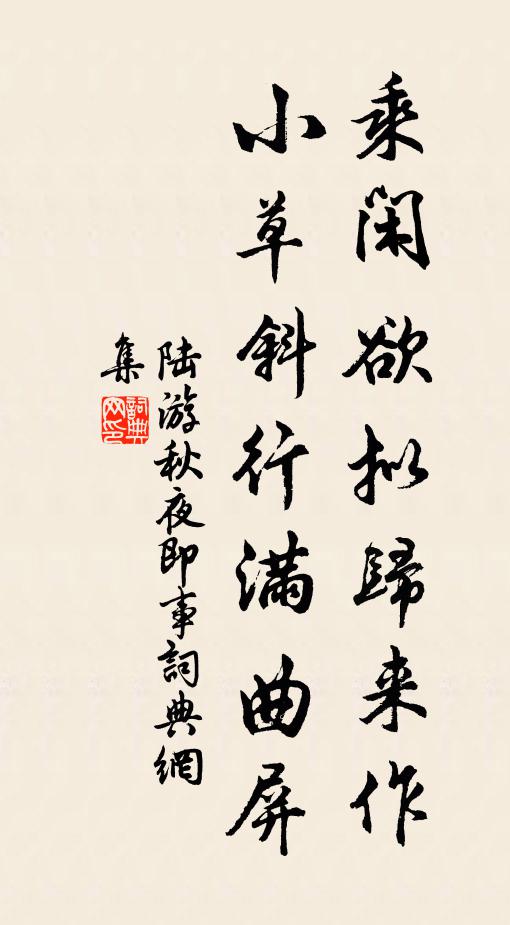 乘闲欲拟歸来作
小草斜行满曲屏
陆游秋夜即事詞典網
集
詞典网印